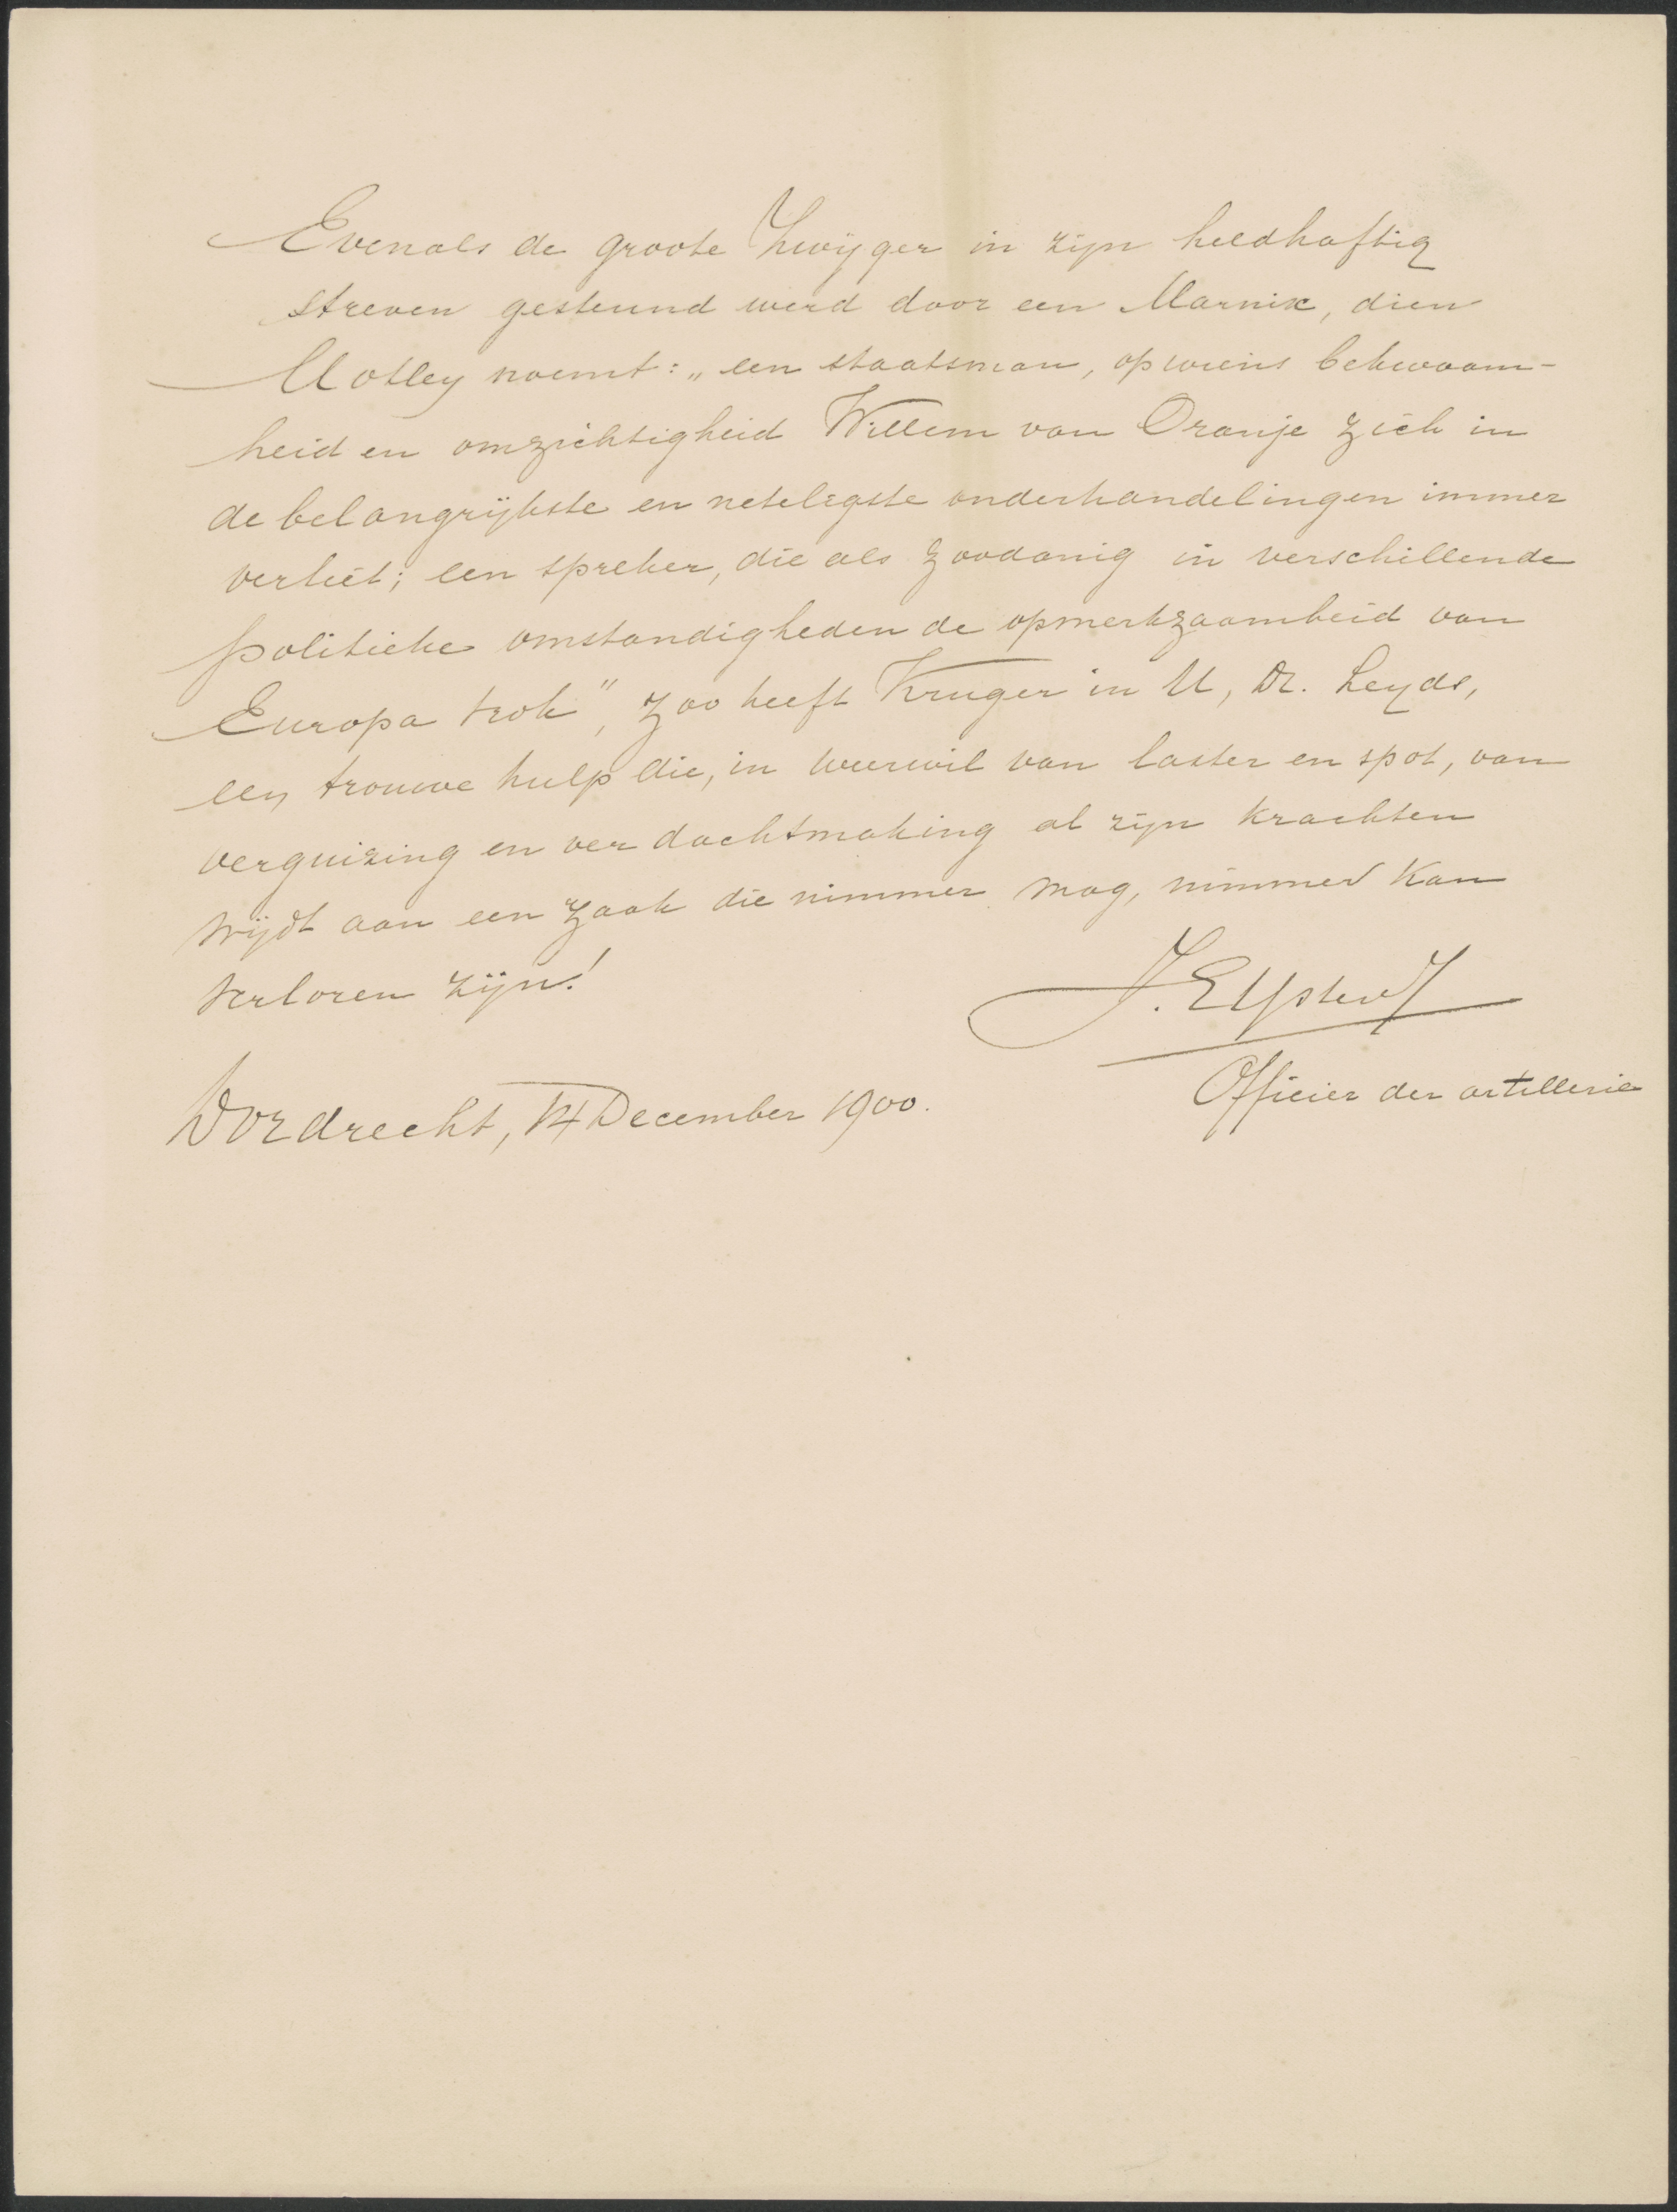 Evenals de groote Zwijger in zijn heldhaftig
streven gesteund werd door een Marnix, dien
Motley noemt: „een staatsman, op wiens bekwaam-
heid en omzichtigheid Willem van Oranje zich in
de belangrijkste en neteligste onderhandelingen immer
verliet; een spreker, die als zoodanig in verschillende
politieke omstandigheden de opmerkzaamheid van
Europa trok", zoo heeft Kruger in U, Dr. Leyds,
een trouwe hulp die, in weerwil van laster en spot, van
verguizing en verdachtmaking al zijn krachten
wijdt aan een zaak die nimmer mag, nimmer kan
verloren zijn!
J.
Officier der artillerie
Dordrecht, 14 December 1900.